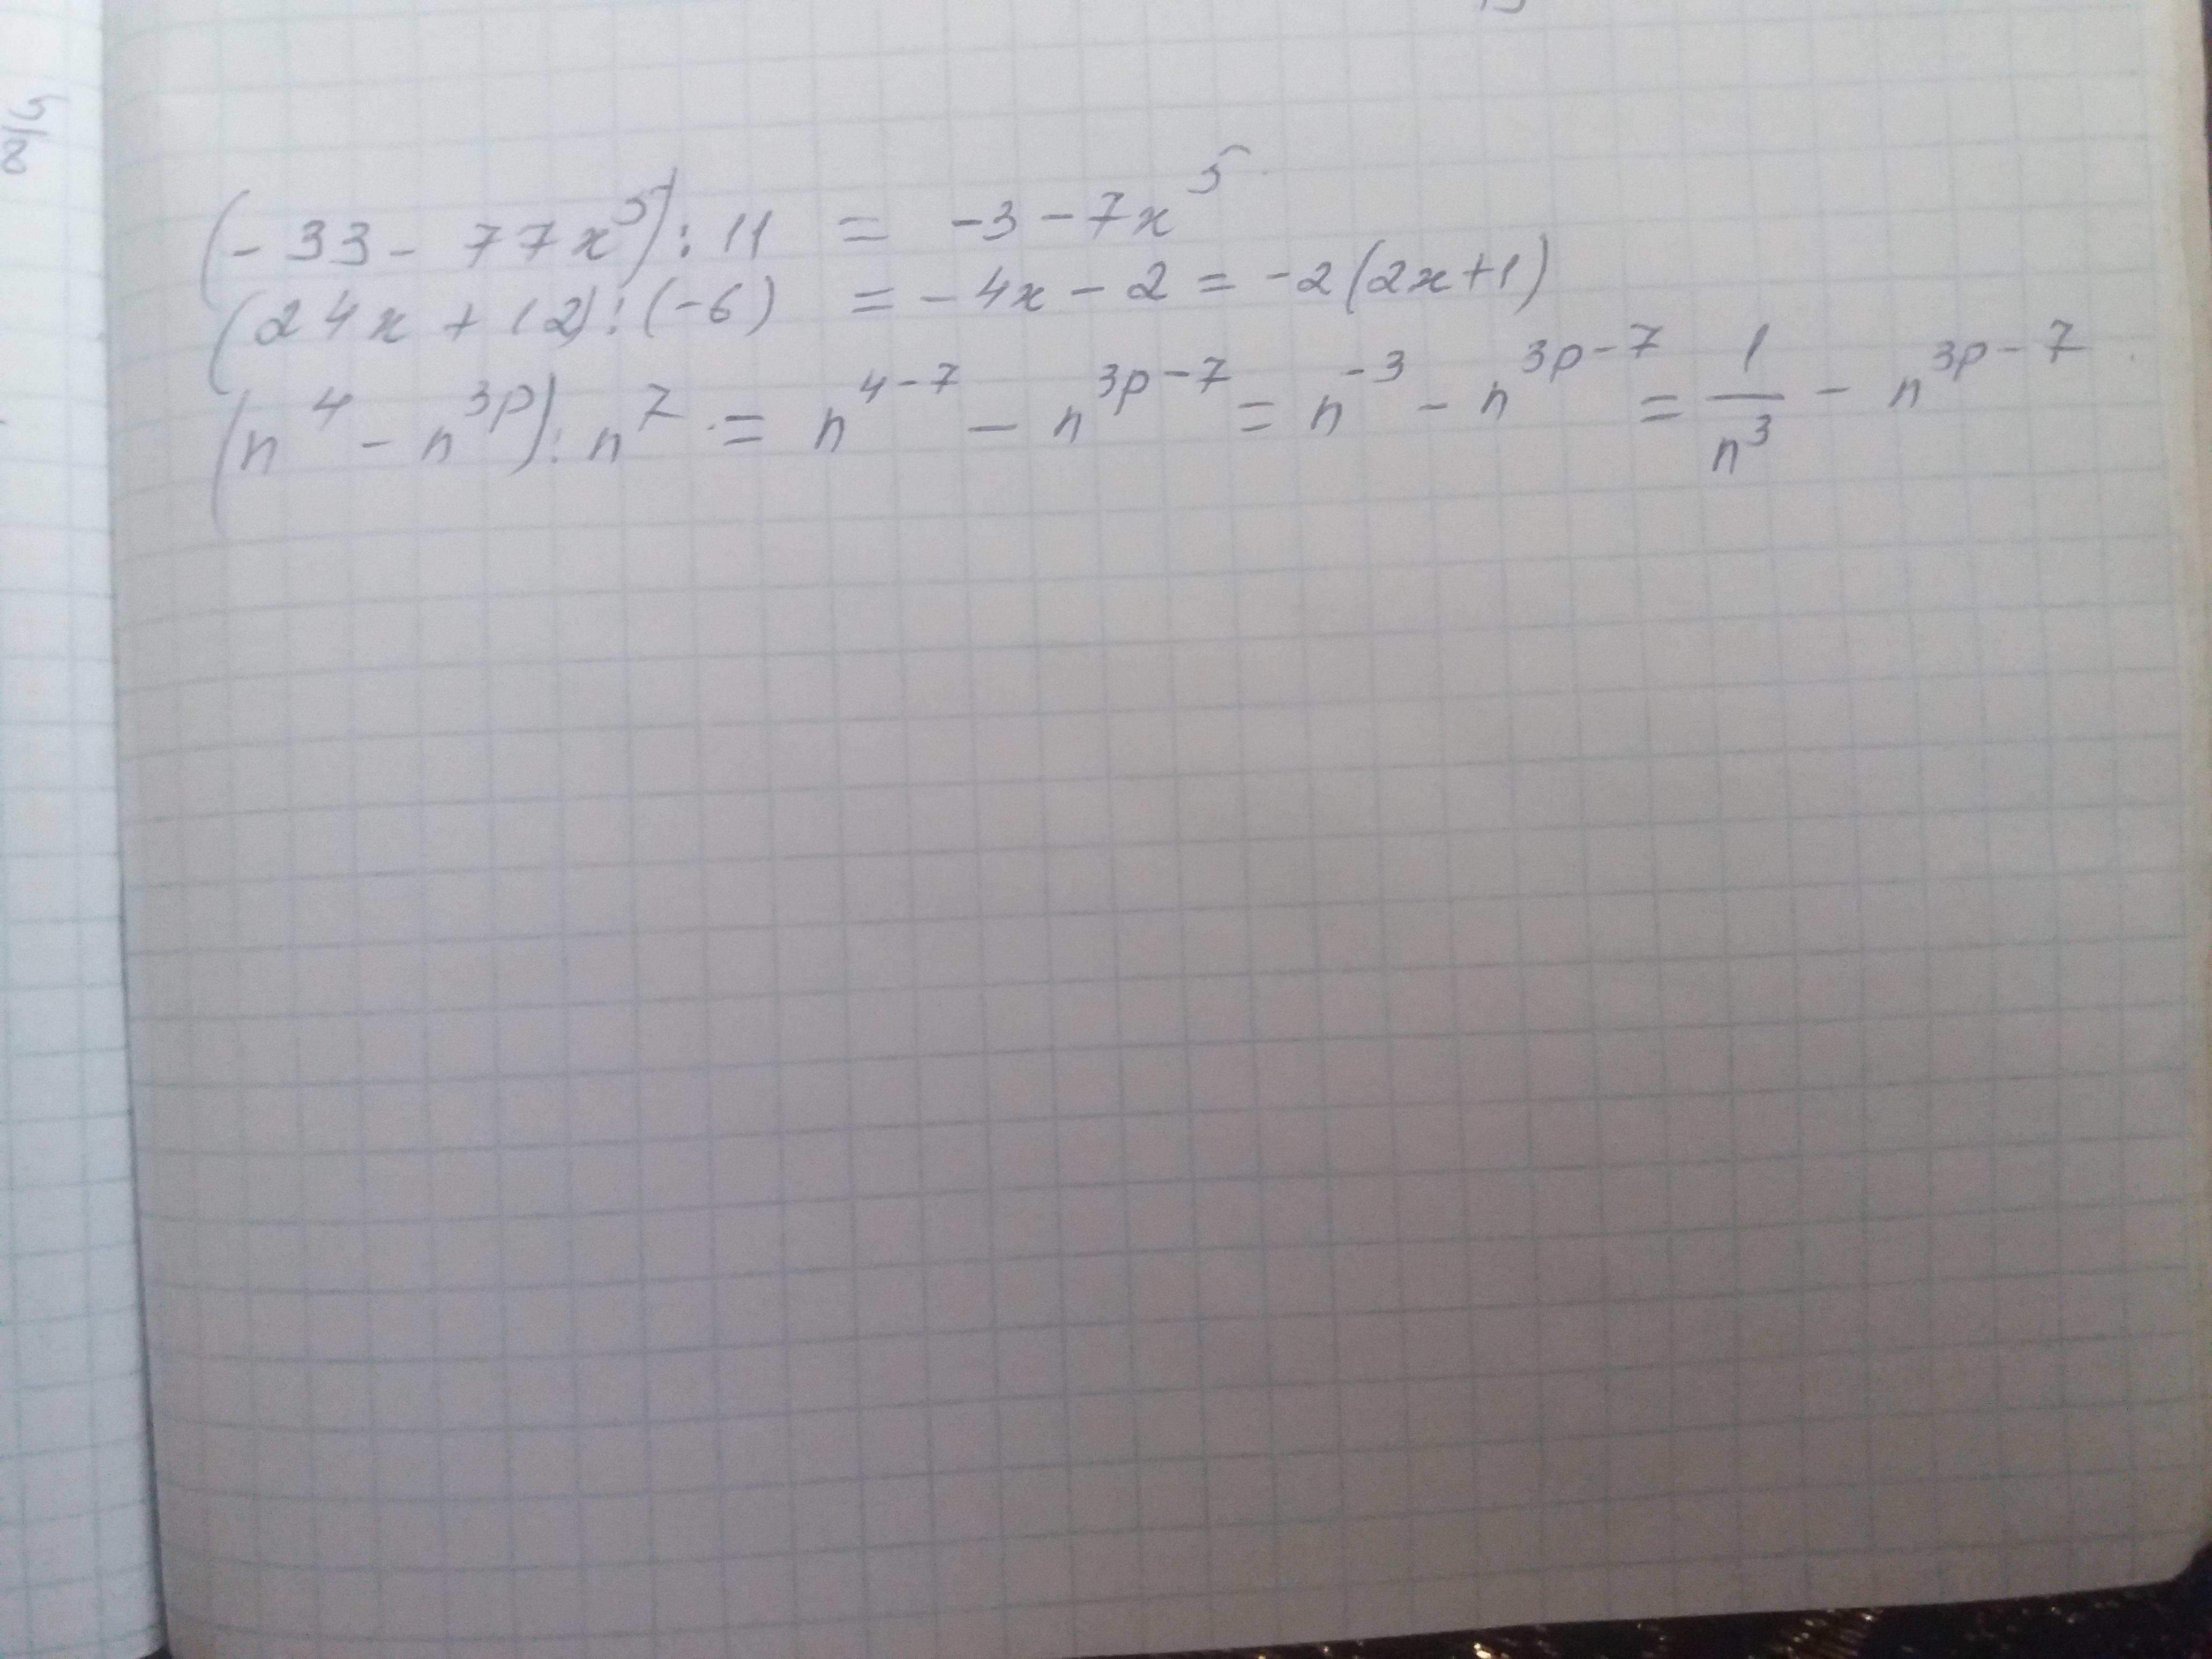 (-33-77x⁵):11 = -3-7x⁵
(24x+12):(-6) = -4x-2 = -2(2x+1)
(n⁴-n³ᵖ):n⁷ = n⁴⁻⁷ - n³ᵖ⁻⁷ = n⁻³ - n³ᵖ⁻⁷ = 1/n³ - n³ᵖ⁻⁷